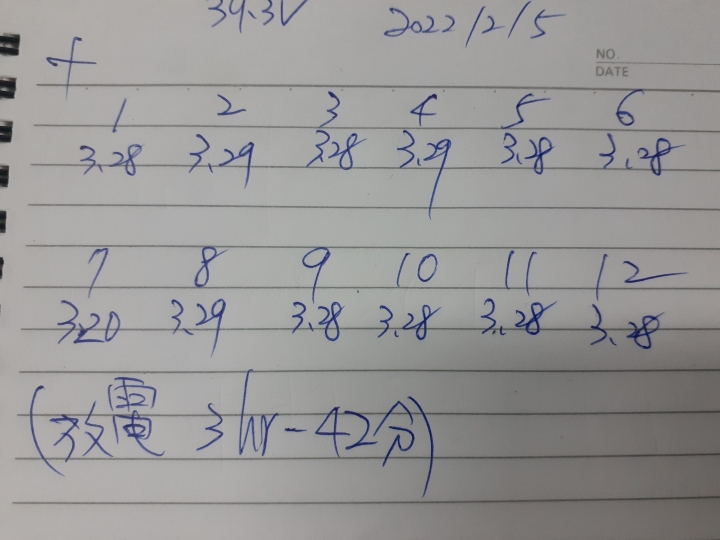 39.3V 2022/2/5
NO.
DATE
+
1 2 3 4 5 6
3.28 3.29 3.28 3.29 3.28 3.28
7 8 9 10 11 12
3.20 3.29 3.28 3.28 3.28 3.28
(放電 3hr-42分)